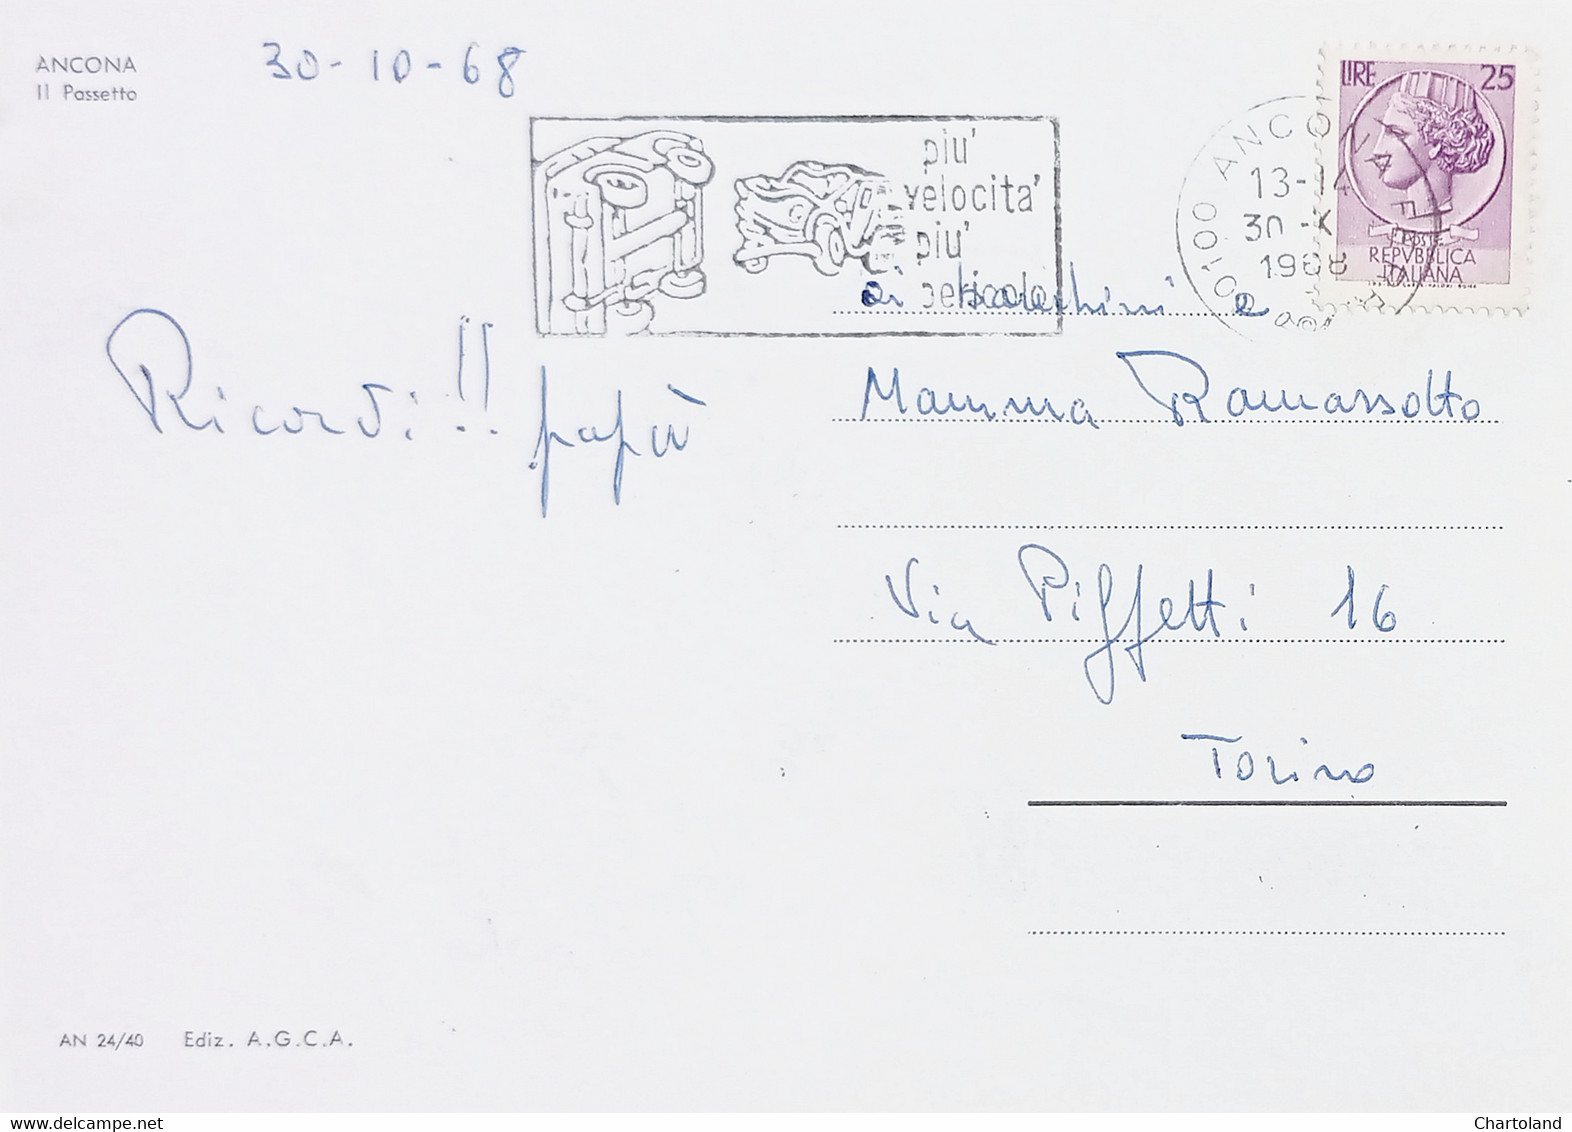 ANCONA
Il Passetto
30-10-68
LIRE 25
POSTE
REPVBBLICA
ITALIANA
ANCONA
13-14
30-X
1968
piu'
velocita'
piu'
pericolo
ai e
Ricordi!! papà
Mamma Ramassotto
Via Piffetti 16
Torino
AN 24/40 Ediz. A.G.C.A.
delcampe.net
Chartoland